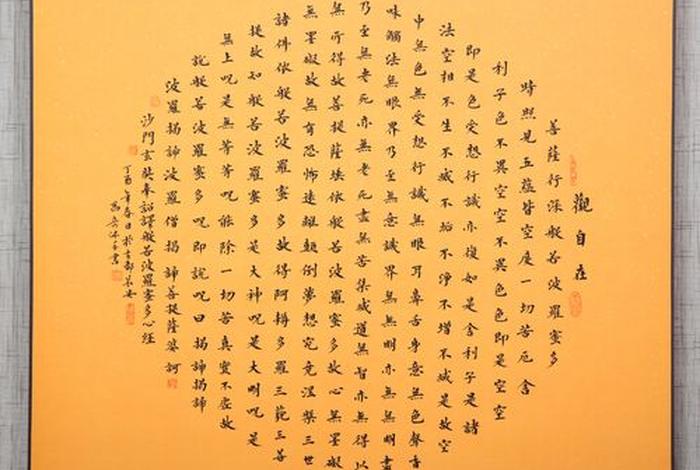 觀自在
菩薩行深般若波羅蜜多
時照見五蘊皆空度一切苦厄舍
利子色不異空空不異色色即是空空
即是色受想行識亦復如是舍利子是諸
法空相不生不滅不垢不淨不增不減是故空
中無色無受想行識無眼耳鼻舌身意無色聲香
味觸法無眼界乃至無意識界無無明亦無無明盡
乃至無老死亦無老死盡無苦集滅道無智亦無得以
無所得故菩提薩埵依般若波羅蜜多故心無罣礙
無罣礙故無有恐怖遠離顛倒夢想究竟涅槃三世
諸佛依般若波羅蜜多故得阿耨多羅三藐三菩
提故知般若波羅蜜多是大神呪是大明呪是
無上呪是無等等呪能除一切苦真實不虛故
說般若波羅蜜多呪即說呪曰揭諦揭諦
波羅揭諦波羅僧揭諦菩提薩婆訶
沙門玄奘奉詔譯般若波羅蜜多心經
丁酉年春日於